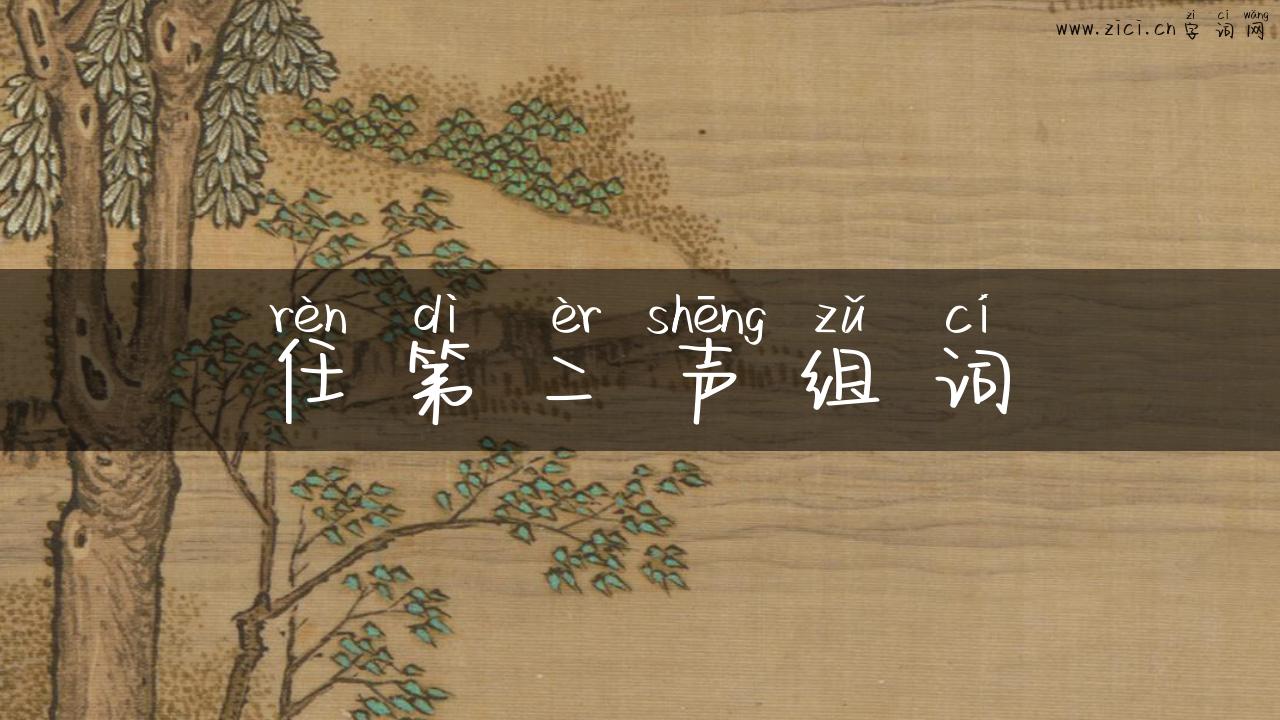 zì cí wǎng
www.zici.cn 字词网
rèn dì èr shēng zǔ cí
任第二声组词